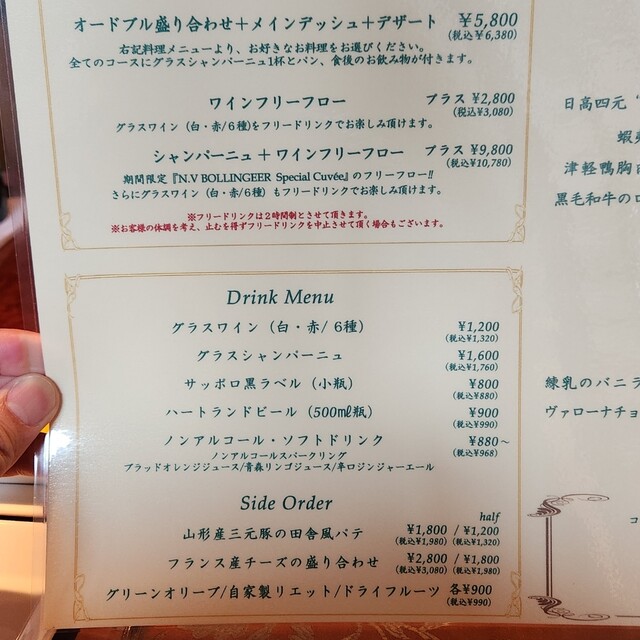 オードブル盛り合わせ＋メインデッシュ＋デザート ¥5,800
(税込¥6,380)
右記料理メニューより、お好きなお料理をお選びください。
全てのコースにグラスシャンパーニュ1杯とパン、食後のお飲み物が付きます。
ワインフリーフロー プラス ¥2,800
(税込¥3,080)
グラスワイン（白・赤/６種)をフリードリンクでお楽しみ頂けます。
シャンパーニュ＋ワインフリーフロー プラス ¥9,800
(税込¥10,780)
期間限定『N.V BOLLINGEER Special Cuvée』のフリーフロー!!
さらにグラスワイン（白・赤/６種）もフリードリンクでお楽しみ頂けます。
※フリードリンクは２時間制とさせて頂きます。
※お客様の体調を考え、止むを得ずフリードリンクを中止させて頂く場合もございます。
Drink Menu
グラスワイン（白・赤/ 6種） ¥1,200
(税込¥1,320)
グラスシャンパーニュ ¥1,600
(税込¥1,760)
サッポロ黒ラベル（小瓶） ¥800
(税込¥880)
ハートランドビール（500㎖瓶） ¥900
(税込¥990)
ノンアルコール・ソフトドリンク ¥880～
(税込¥968)
ノンアルコールスパークリング
ブラッドオレンジジュース/青森リンゴジュース/辛口ジンジャーエール
Side Order
half
山形産三元豚の田舎風パテ ¥1,800 / ¥1,200
(税込¥1,980) (税込¥1,320)
フランス産チーズの盛り合わせ ¥2,800 / ¥1,800
(税込¥3,080) (税込¥1,980)
グリーンオリーブ/自家製リエット/ドライフルーツ 各¥900
(税込¥990)
日高四元
津軽鴨胸
黒毛和牛の
練乳のバニラ
ヴァローナチョ
コ